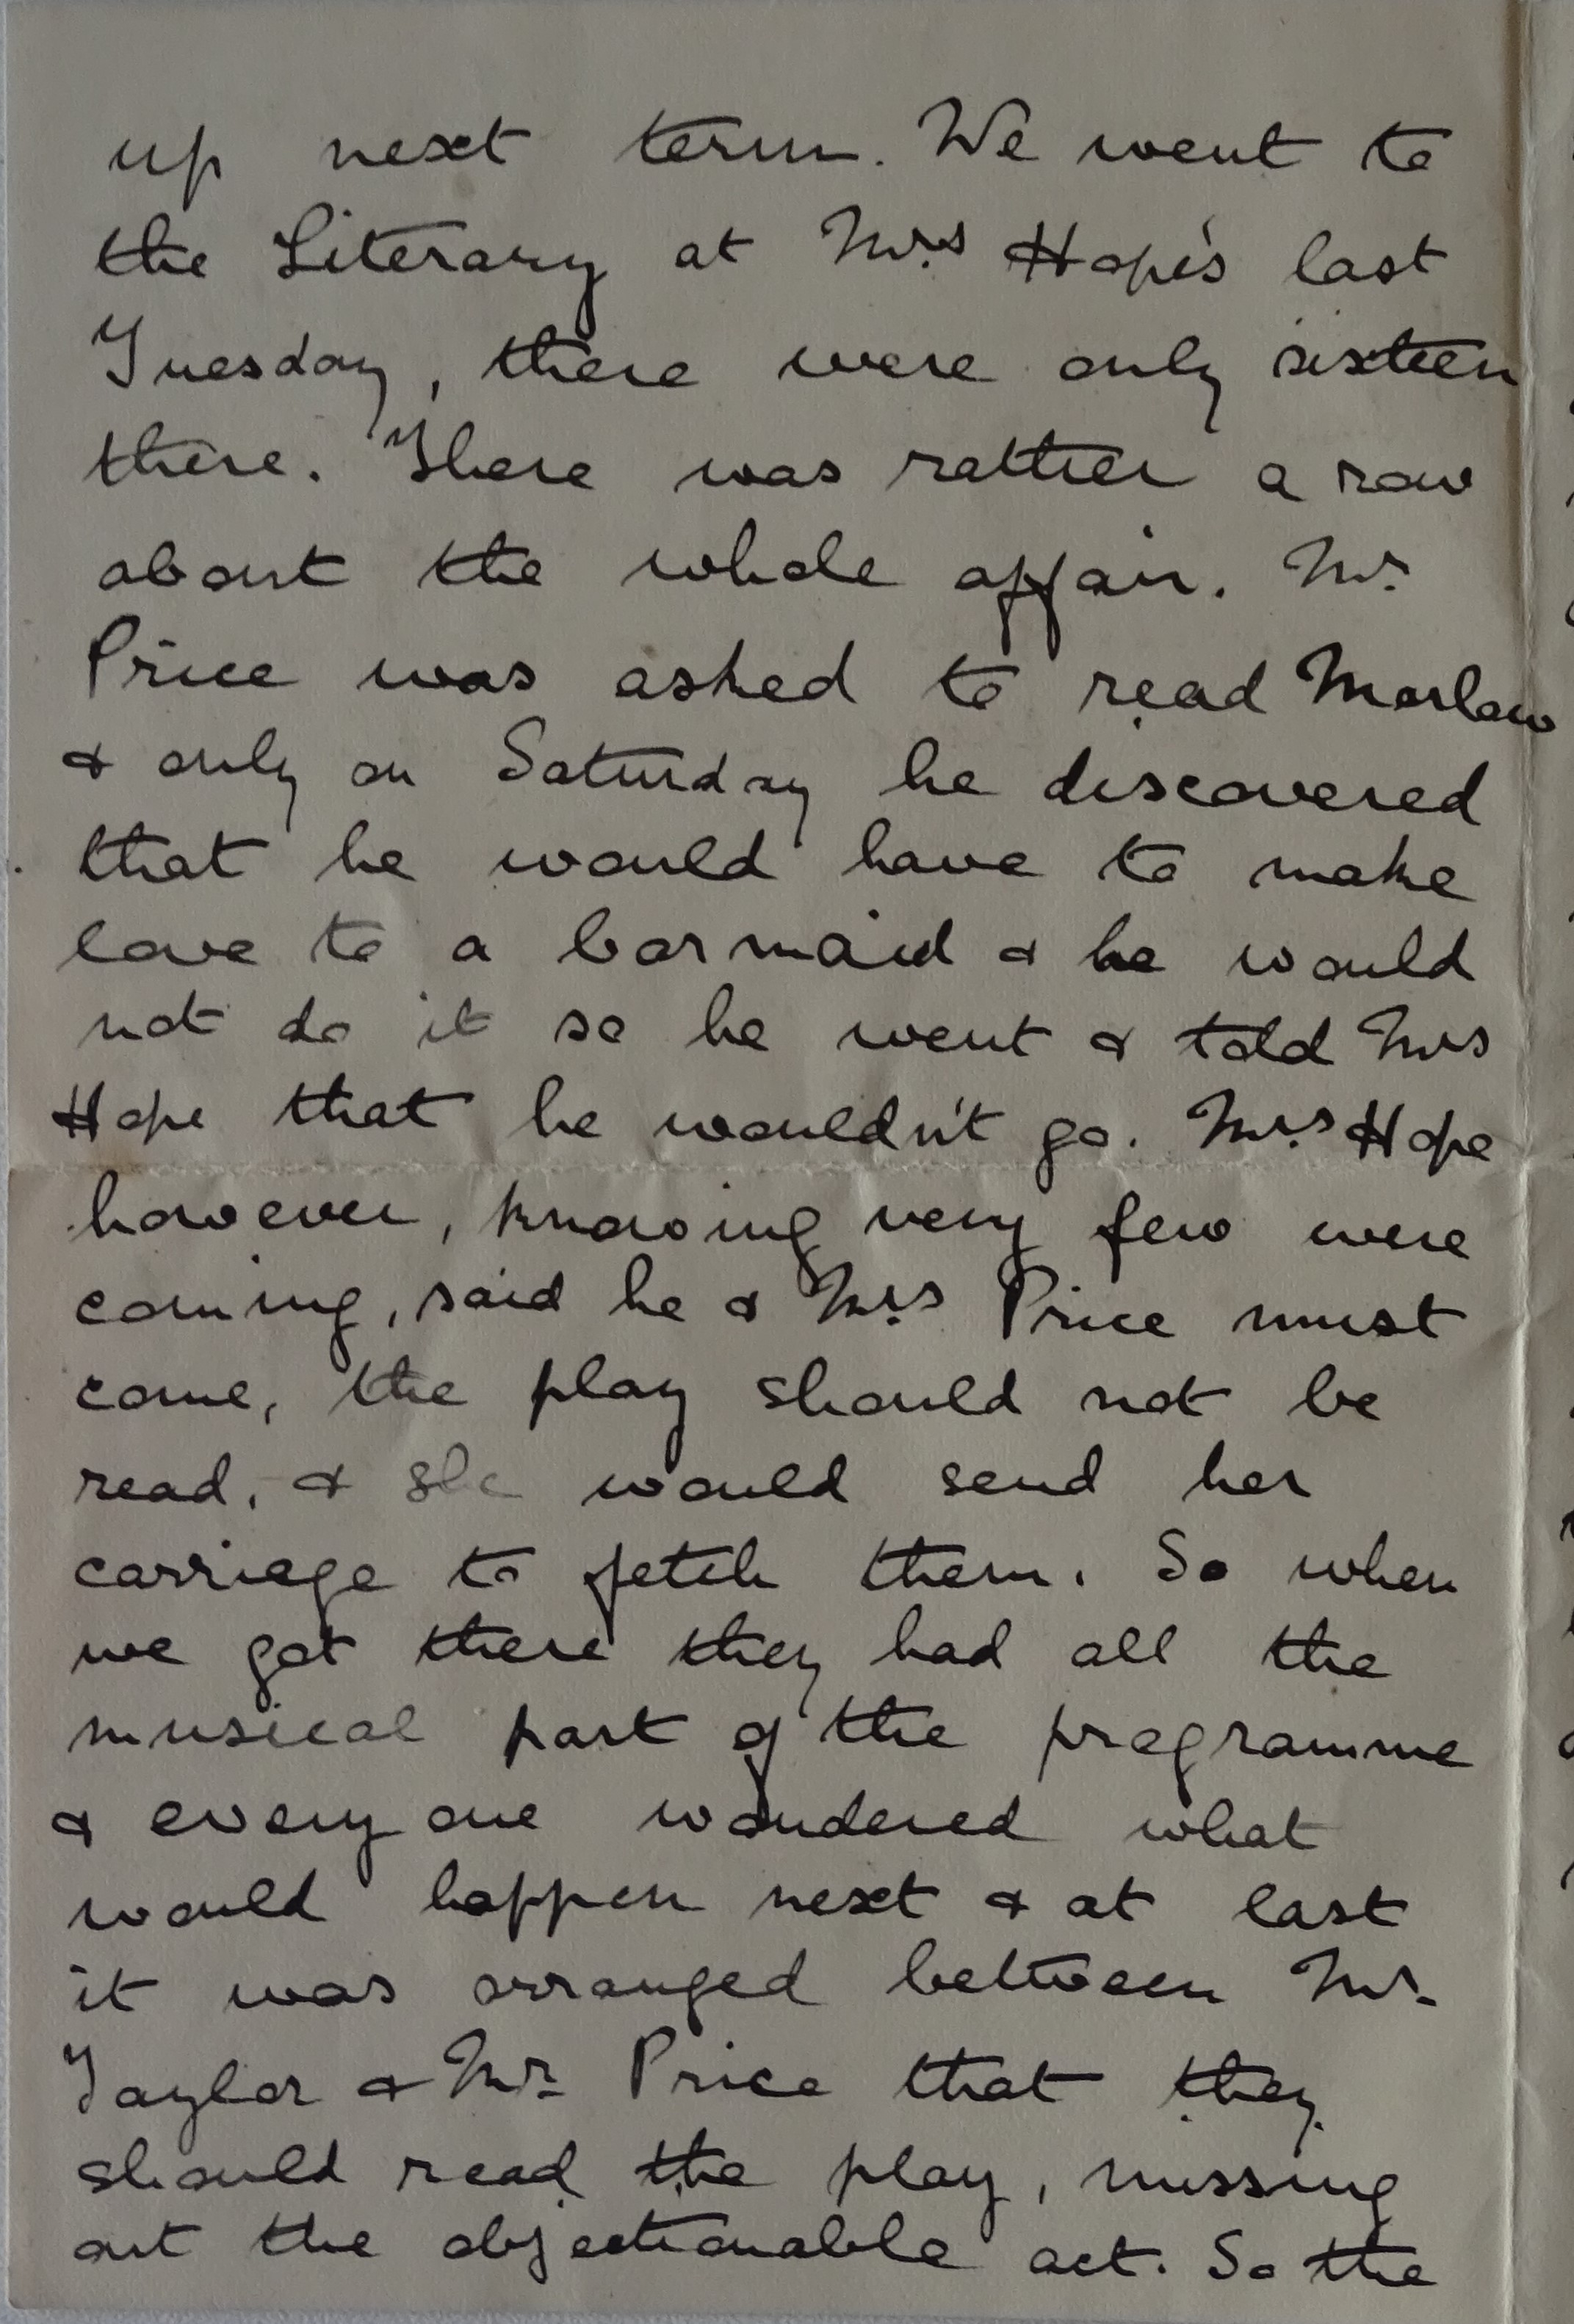 up next term. We went to
the Literary at Mrs Hope's last
Tuesday, there were only sixteen
there. There was rather a row
about the whole affair. Mr.
Price was asked to read Marlow
& only on Saturday he discovered
that he would have to make
love to a barmaid & he would
not do it so he went & told Mrs
Hope that he wouldn't go. Mrs Hope
however, knowing very few were
coming, said he & Mrs Price must
come, the play should not be
read, & she would send her
carriage to fetch them. So when
we got there they had all the
musical part of the programme
& every one wondered what
would happen next & at last
it was arranged between Mr.
Taylor & Mr. Price that they
should read the play, missing
out the objectionable act. So the